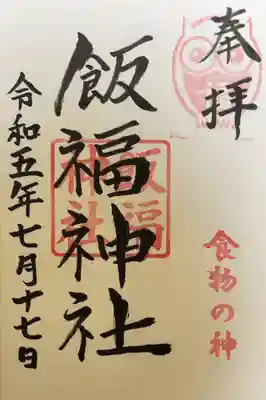 奉拝
食物の神
飯福神社
飯福
神社
令和五年七月十七日